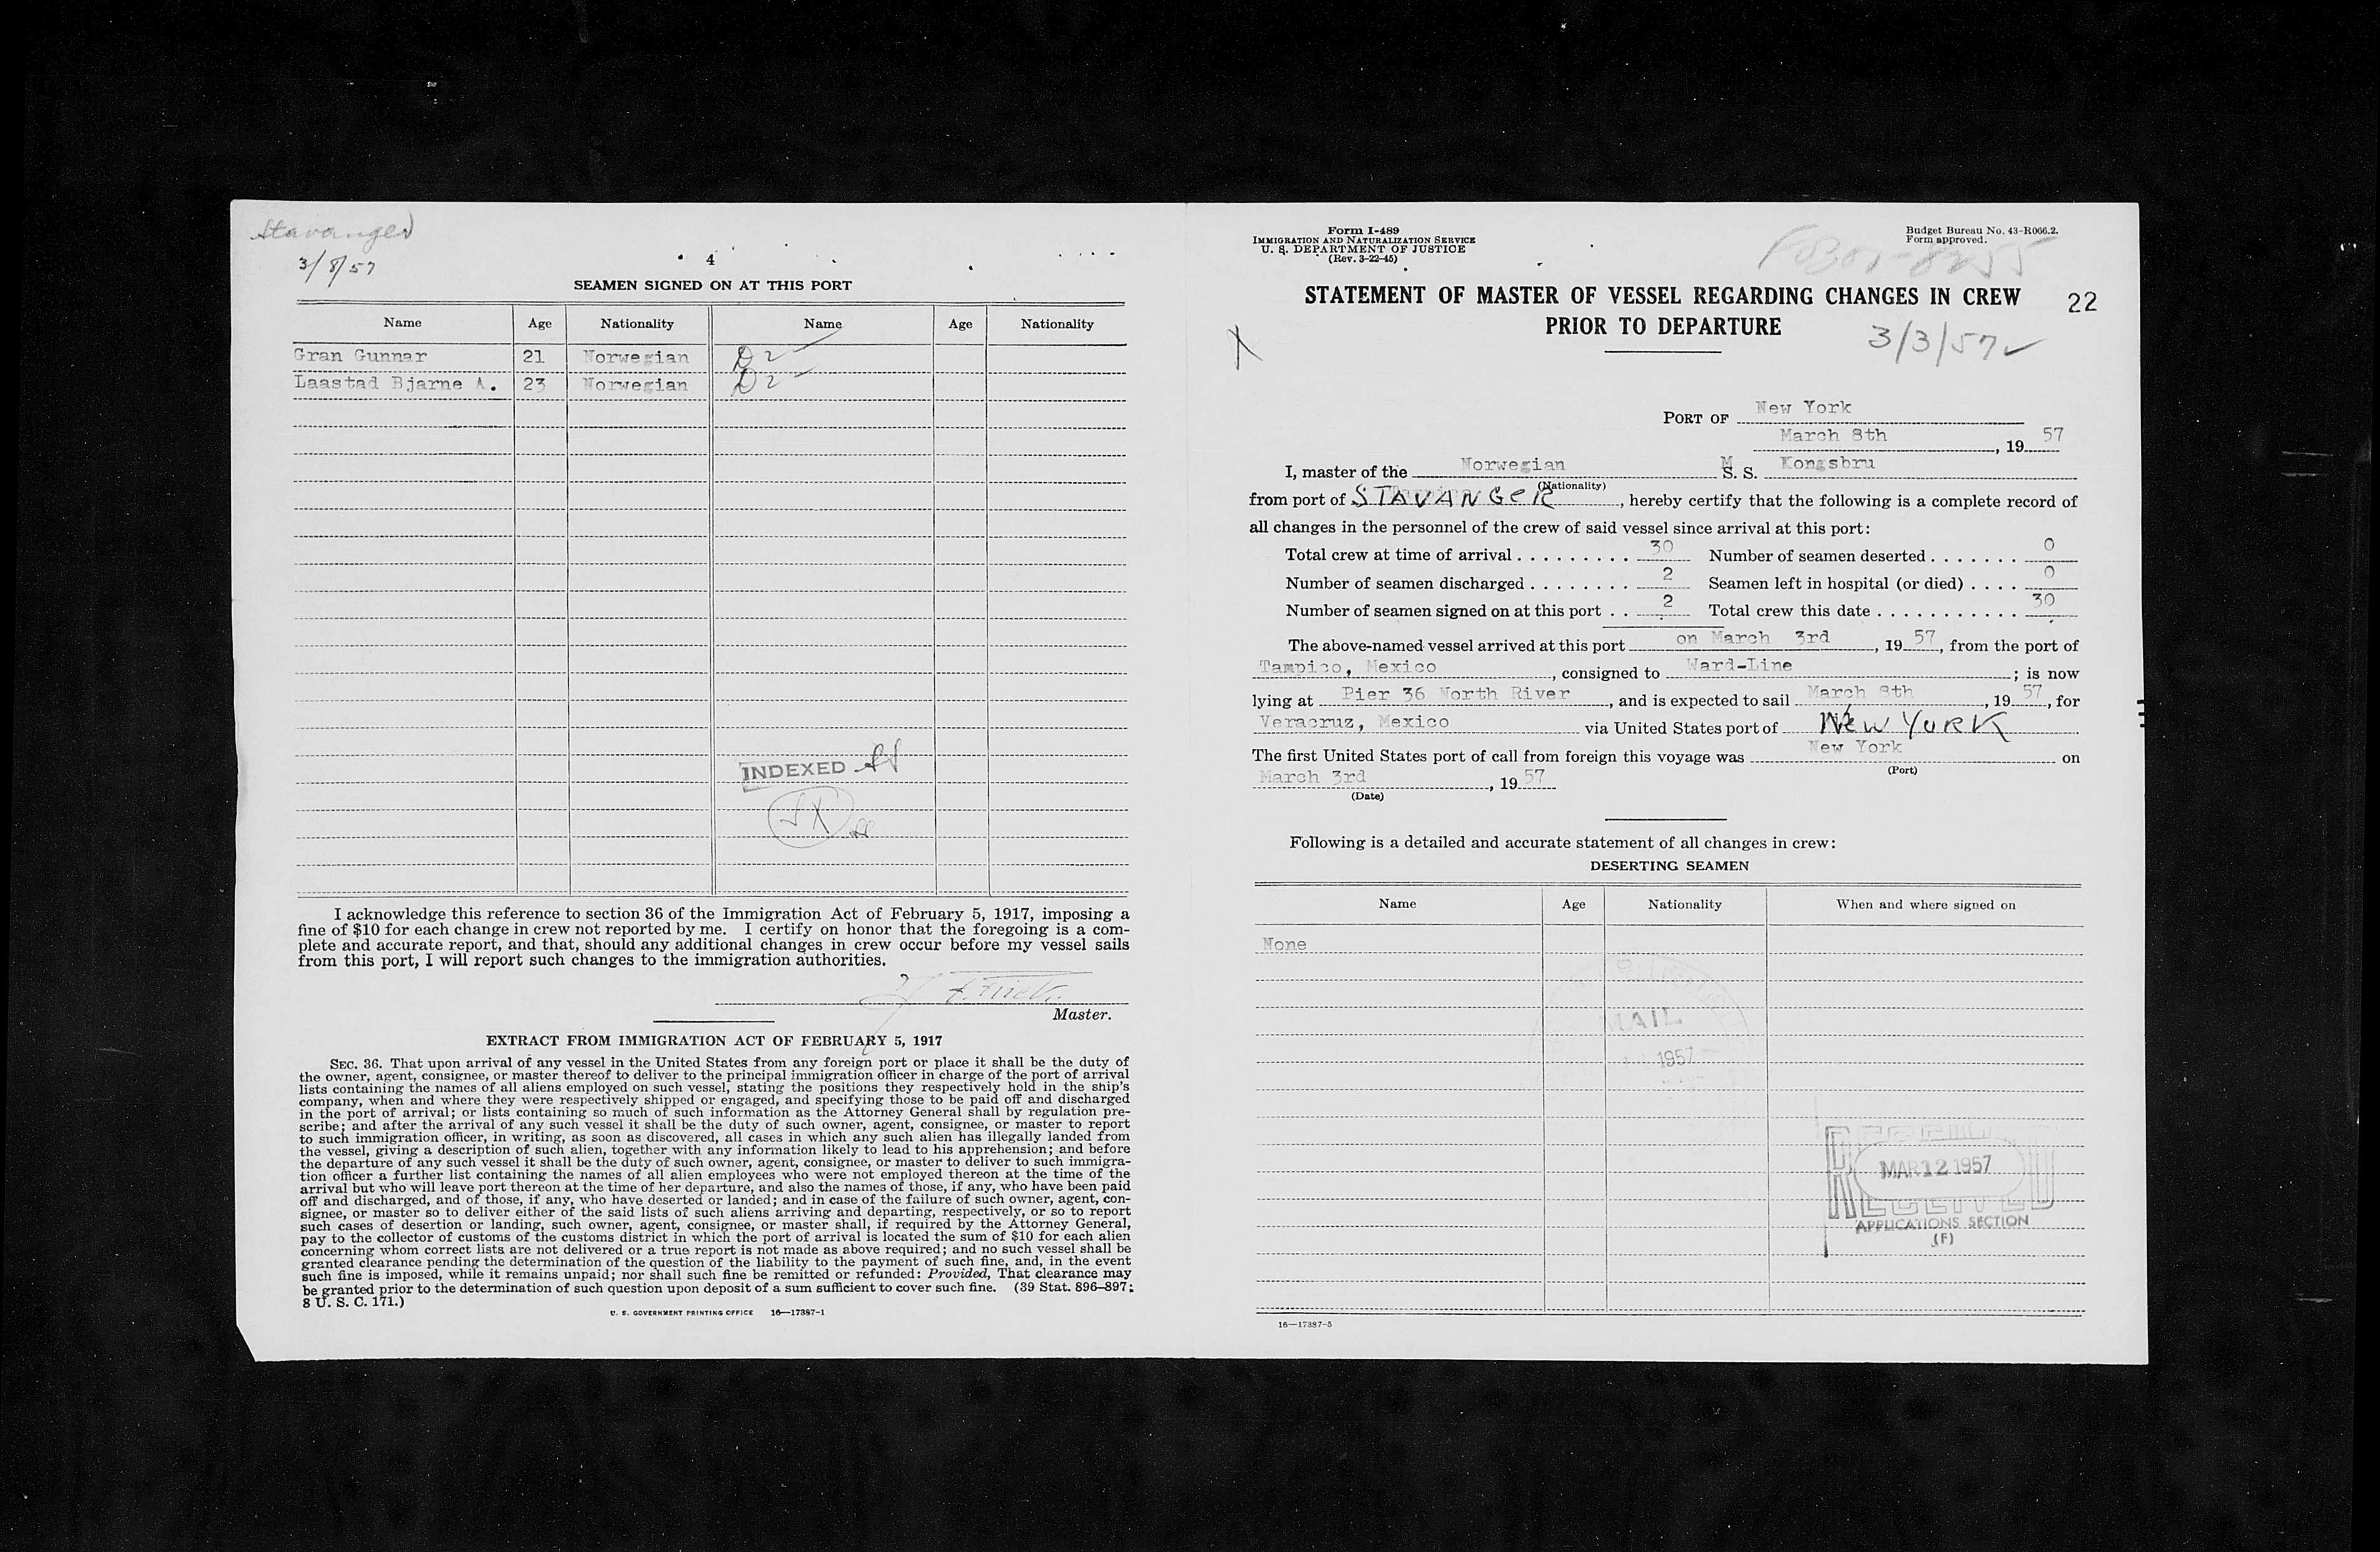 Stavanger
3/8/57
4
SEAMEN SIGNED ON AT THIS PORT
Name Age Nationality Name Age Nationality
Gran Gunnar 21 Norwegian D2
Laastad Bjarne A. 23 Norwegian D2
INDEXED
SX
I acknowledge this reference to section 36 of the Immigration Act of February 5, 1917, imposing a
fine of $10 for each change in crew not reported by me. I certify on honor that the foregoing is a com-
plete and accurate report, and that, should any additional changes in crew occur before my vessel sails
from this port, I will report such changes to the immigration authorities.
Master.
EXTRACT FROM IMMIGRATION ACT OF FEBRUARY 5, 1917
SEC. 36. That upon arrival of any vessel in the United States from any foreign port or place it shall be the duty of
the owner, agent, consignee, or master thereof to deliver to the principal immigration officer in charge of the port of arrival
lists containing the names of all aliens employed on such vessel, stating the positions they respectively hold in the ship's
company, when and where they were respectively shipped or engaged, and specifying those to be paid off and discharged
in the port of arrival; or lists containing so much of such information as the Attorney General shall by regulation pre-
scribe; and after the arrival of any such vessel it shall be the duty of such owner, agent, consignee, or master to report
to such immigration officer, in writing, as soon as discovered, all cases in which any such alien has illegally landed from
the vessel, giving a description of such alien, together with any information likely to lead to his apprehension; and before
the departure of any such vessel it shall be the duty of such owner, agent, consignee, or master to deliver to such immigra-
tion officer a further list containing the names of all alien employees who were not employed thereon at the time of the
arrival but who will leave port thereon at the time of her departure, and also the names of those, if any, who have been paid
off and discharged, and of those, if any, who have deserted or landed; and in case of the failure of such owner, agent, con-
signee, or master so to deliver either of the said lists of such aliens arriving and departing, respectively, or so to report
such cases of desertion or landing, such owner, agent, consignee, or master shall, if required by the Attorney General,
pay to the collector of customs of the customs district in which the port of arrival is located the sum of $10 for each alien
concerning whom correct lists are not delivered or a true report is not made as above required; and no such vessel shall be
granted clearance pending the determination of the question of the liability to the payment of such fine, and, in the event
such fine is imposed, while it remains unpaid; nor shall such fine be remitted or refunded: Provided, That clearance may
be granted prior to the determination of such question upon deposit of a sum sufficient to cover such fine. (39 Stat. 896–897;
8 U. S. C. 171.)
U. S. GOVERNMENT PRINTING OFFICE 16—17387-1
Form I-489
IMMIGRATION AND NATURALIZATION SERVICE
U. S. DEPARTMENT OF JUSTICE
(Rev. 3-22-45)
Budget Bureau No. 43-R066.2.
Form approved.
STATEMENT OF MASTER OF VESSEL REGARDING CHANGES IN CREW
PRIOR TO DEPARTURE
22
3/3/57
X
PORT OF New York
March 8th, 19 57
I, master of the Norwegian M S. S. Kongsbru
(Nationality)
from port of STAVANGER, hereby certify that the following is a complete record of
all changes in the personnel of the crew of said vessel since arrival at this port:
Total crew at time of arrival . . . . . . . . . 30 Number of seamen deserted . . . . . . . 0
Number of seamen discharged . . . . . . . . 2 Seamen left in hospital (or died) . . . . 0
Number of seamen signed on at this port . . 2 Total crew this date . . . . . . . . . . . . 30
The above-named vessel arrived at this port on March 3rd, 19 57, from the port of
Tampico, Mexico, consigned to Ward-Line; is now
lying at Pier 36 North River, and is expected to sail March 8th, 19 57, for
Veracruz, Mexico via United States port of NEW YORK
The first United States port of call from foreign this voyage was New York on
(Port)
March 3rd, 19 57
(Date)
Following is a detailed and accurate statement of all changes in crew:
DESERTING SEAMEN
Name Age Nationality When and where signed on
None
MAIL
1957
RECEIVED
MAR 12 1957
APPLICATIONS SECTION
(F)
16—17387-5